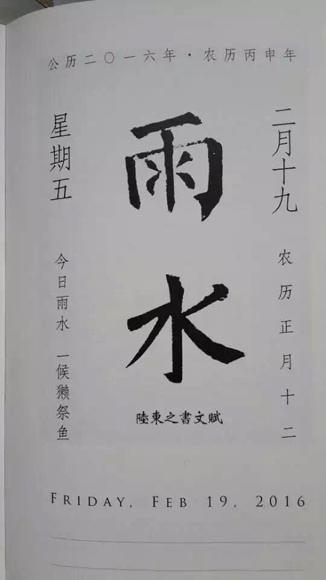 公历二〇一六年·农历丙申年
二月十九
农历正月十二
雨水
陸東之書文賦
星期五
今日雨水 一候獭祭鱼
FRIDAY, FEB 19, 2016